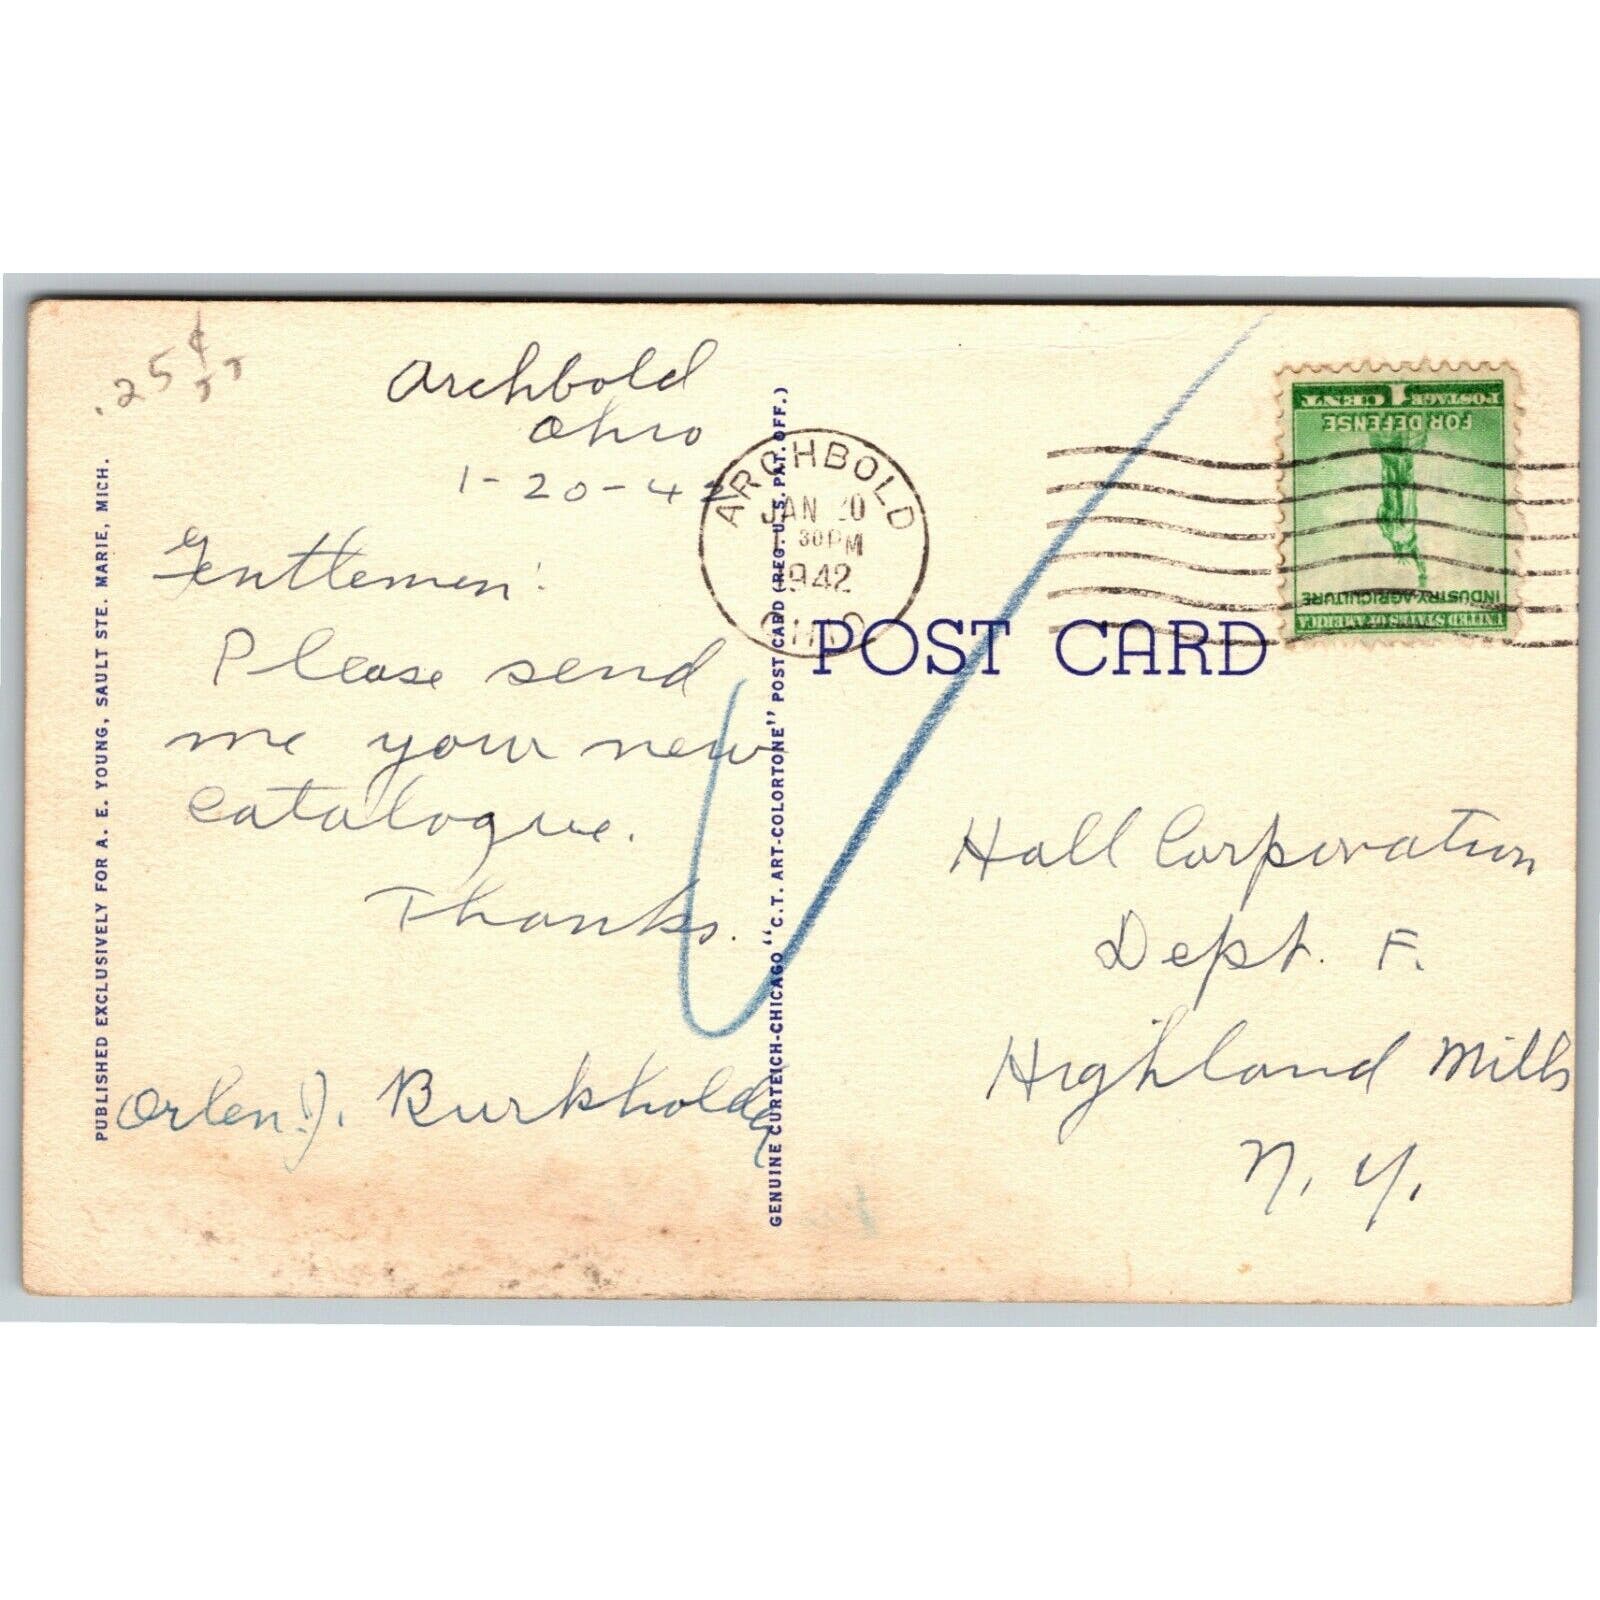 .25¢
Archbold
Ohio
1-20-42
Gentlemen:
Please send
me your new
catalogue.
Thanks.
Orlen J. Burkholder
PUBLISHED EXCLUSIVELY FOR A. E. YOUNG, SAULT STE. MARIE, MICH.
GENUINE CURTEICH-CHICAGO "C.T. ART-COLORTONE" POST CARD (REG. U.S. PAT. OFF.)
ARCHBOLD
JAN 20
30 PM
1942
OHIO
POST CARD
UNITED STATES OF AMERICA
INDUSTRY-AGRICULTURE
FOR DEFENSE
POSTAGE 1 CENT
Hall Corporation
Dept. F.
Highland Mills
N. Y.